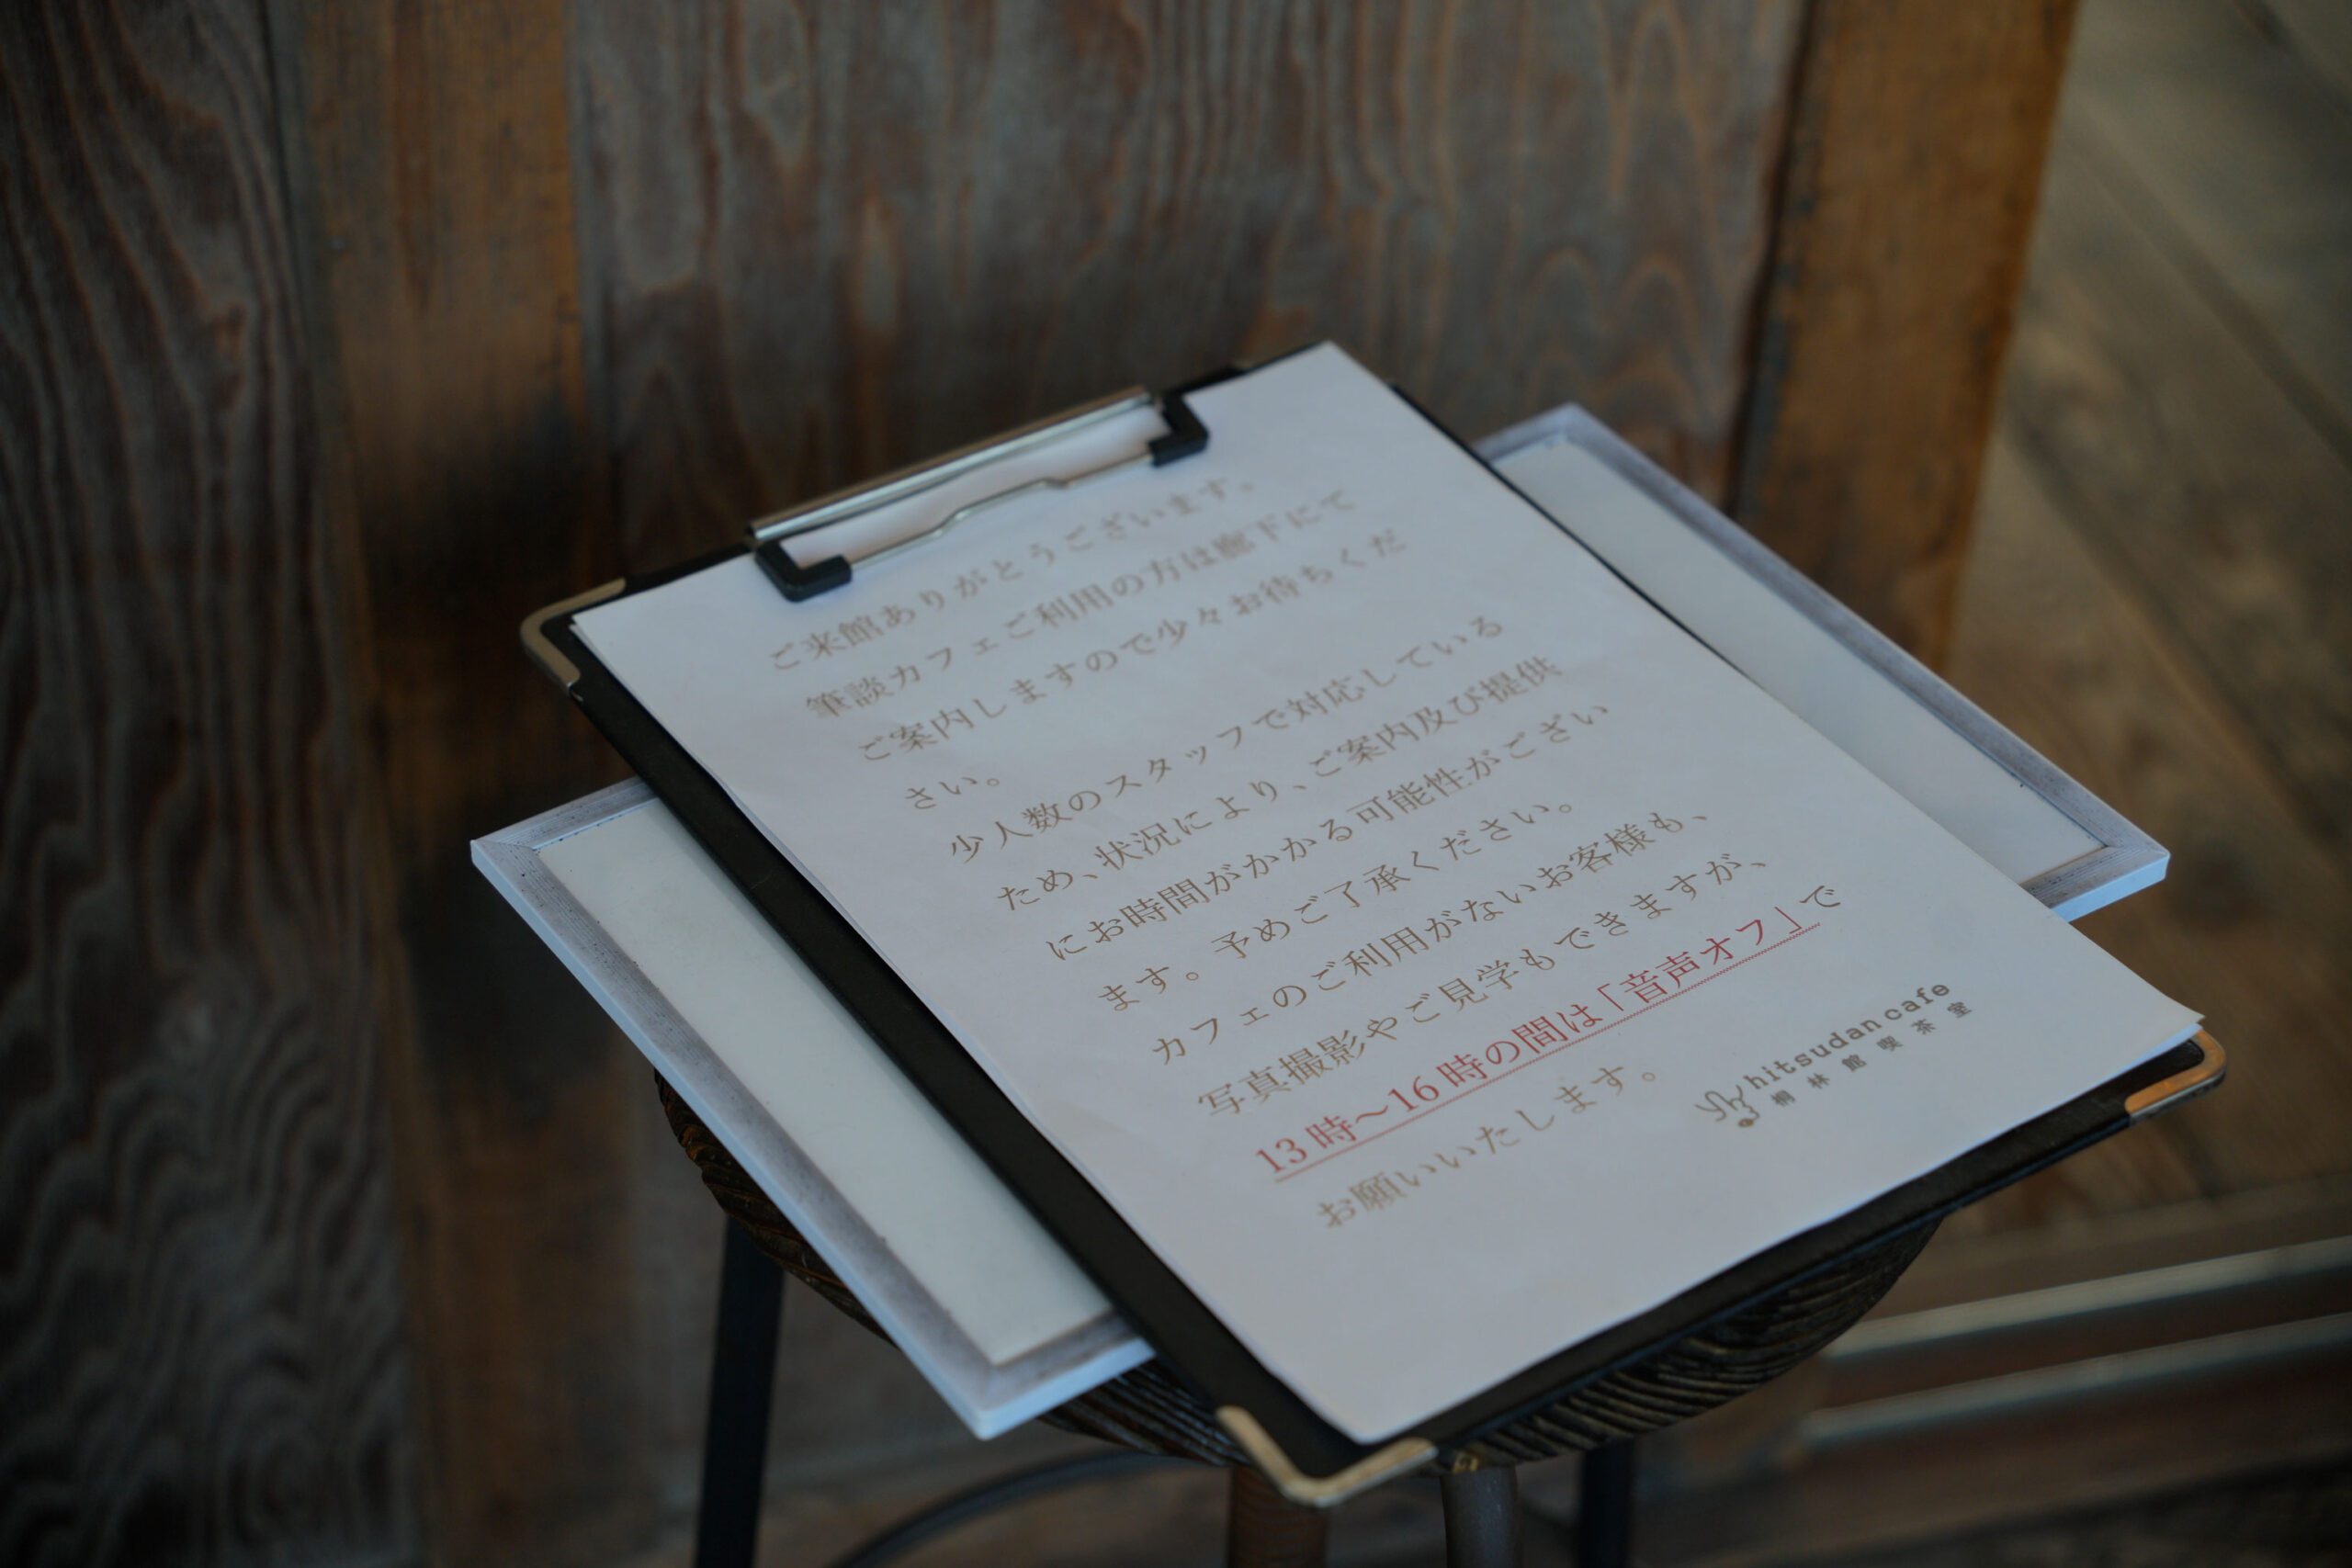 ご来館ありがとうございます。
筆談カフェご利用の方は廊下にて
ご案内しますので少々お待ちくだ
さい。
少人数のスタッフで対応している
ため、状況により、ご案内及び提供
にお時間がかかる可能性がござい
ます。予めご了承ください。
カフェのご利用がないお客様も、
写真撮影やご見学もできますが、
13時〜16時の間は「音声オフ」で
お願いいたします。
hitsudan cafe
桐林館喫茶室